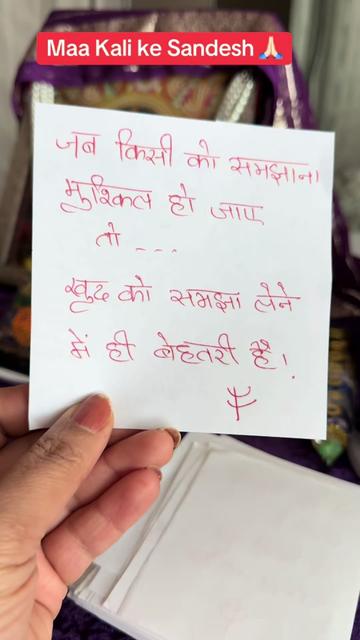 Maa Kali ke Sandesh 🙏🏻
जब किसी को समझाना
मुश्किल हो जाए
तो - - -
खुद को समझा लेने
में ही बेहतरी है।